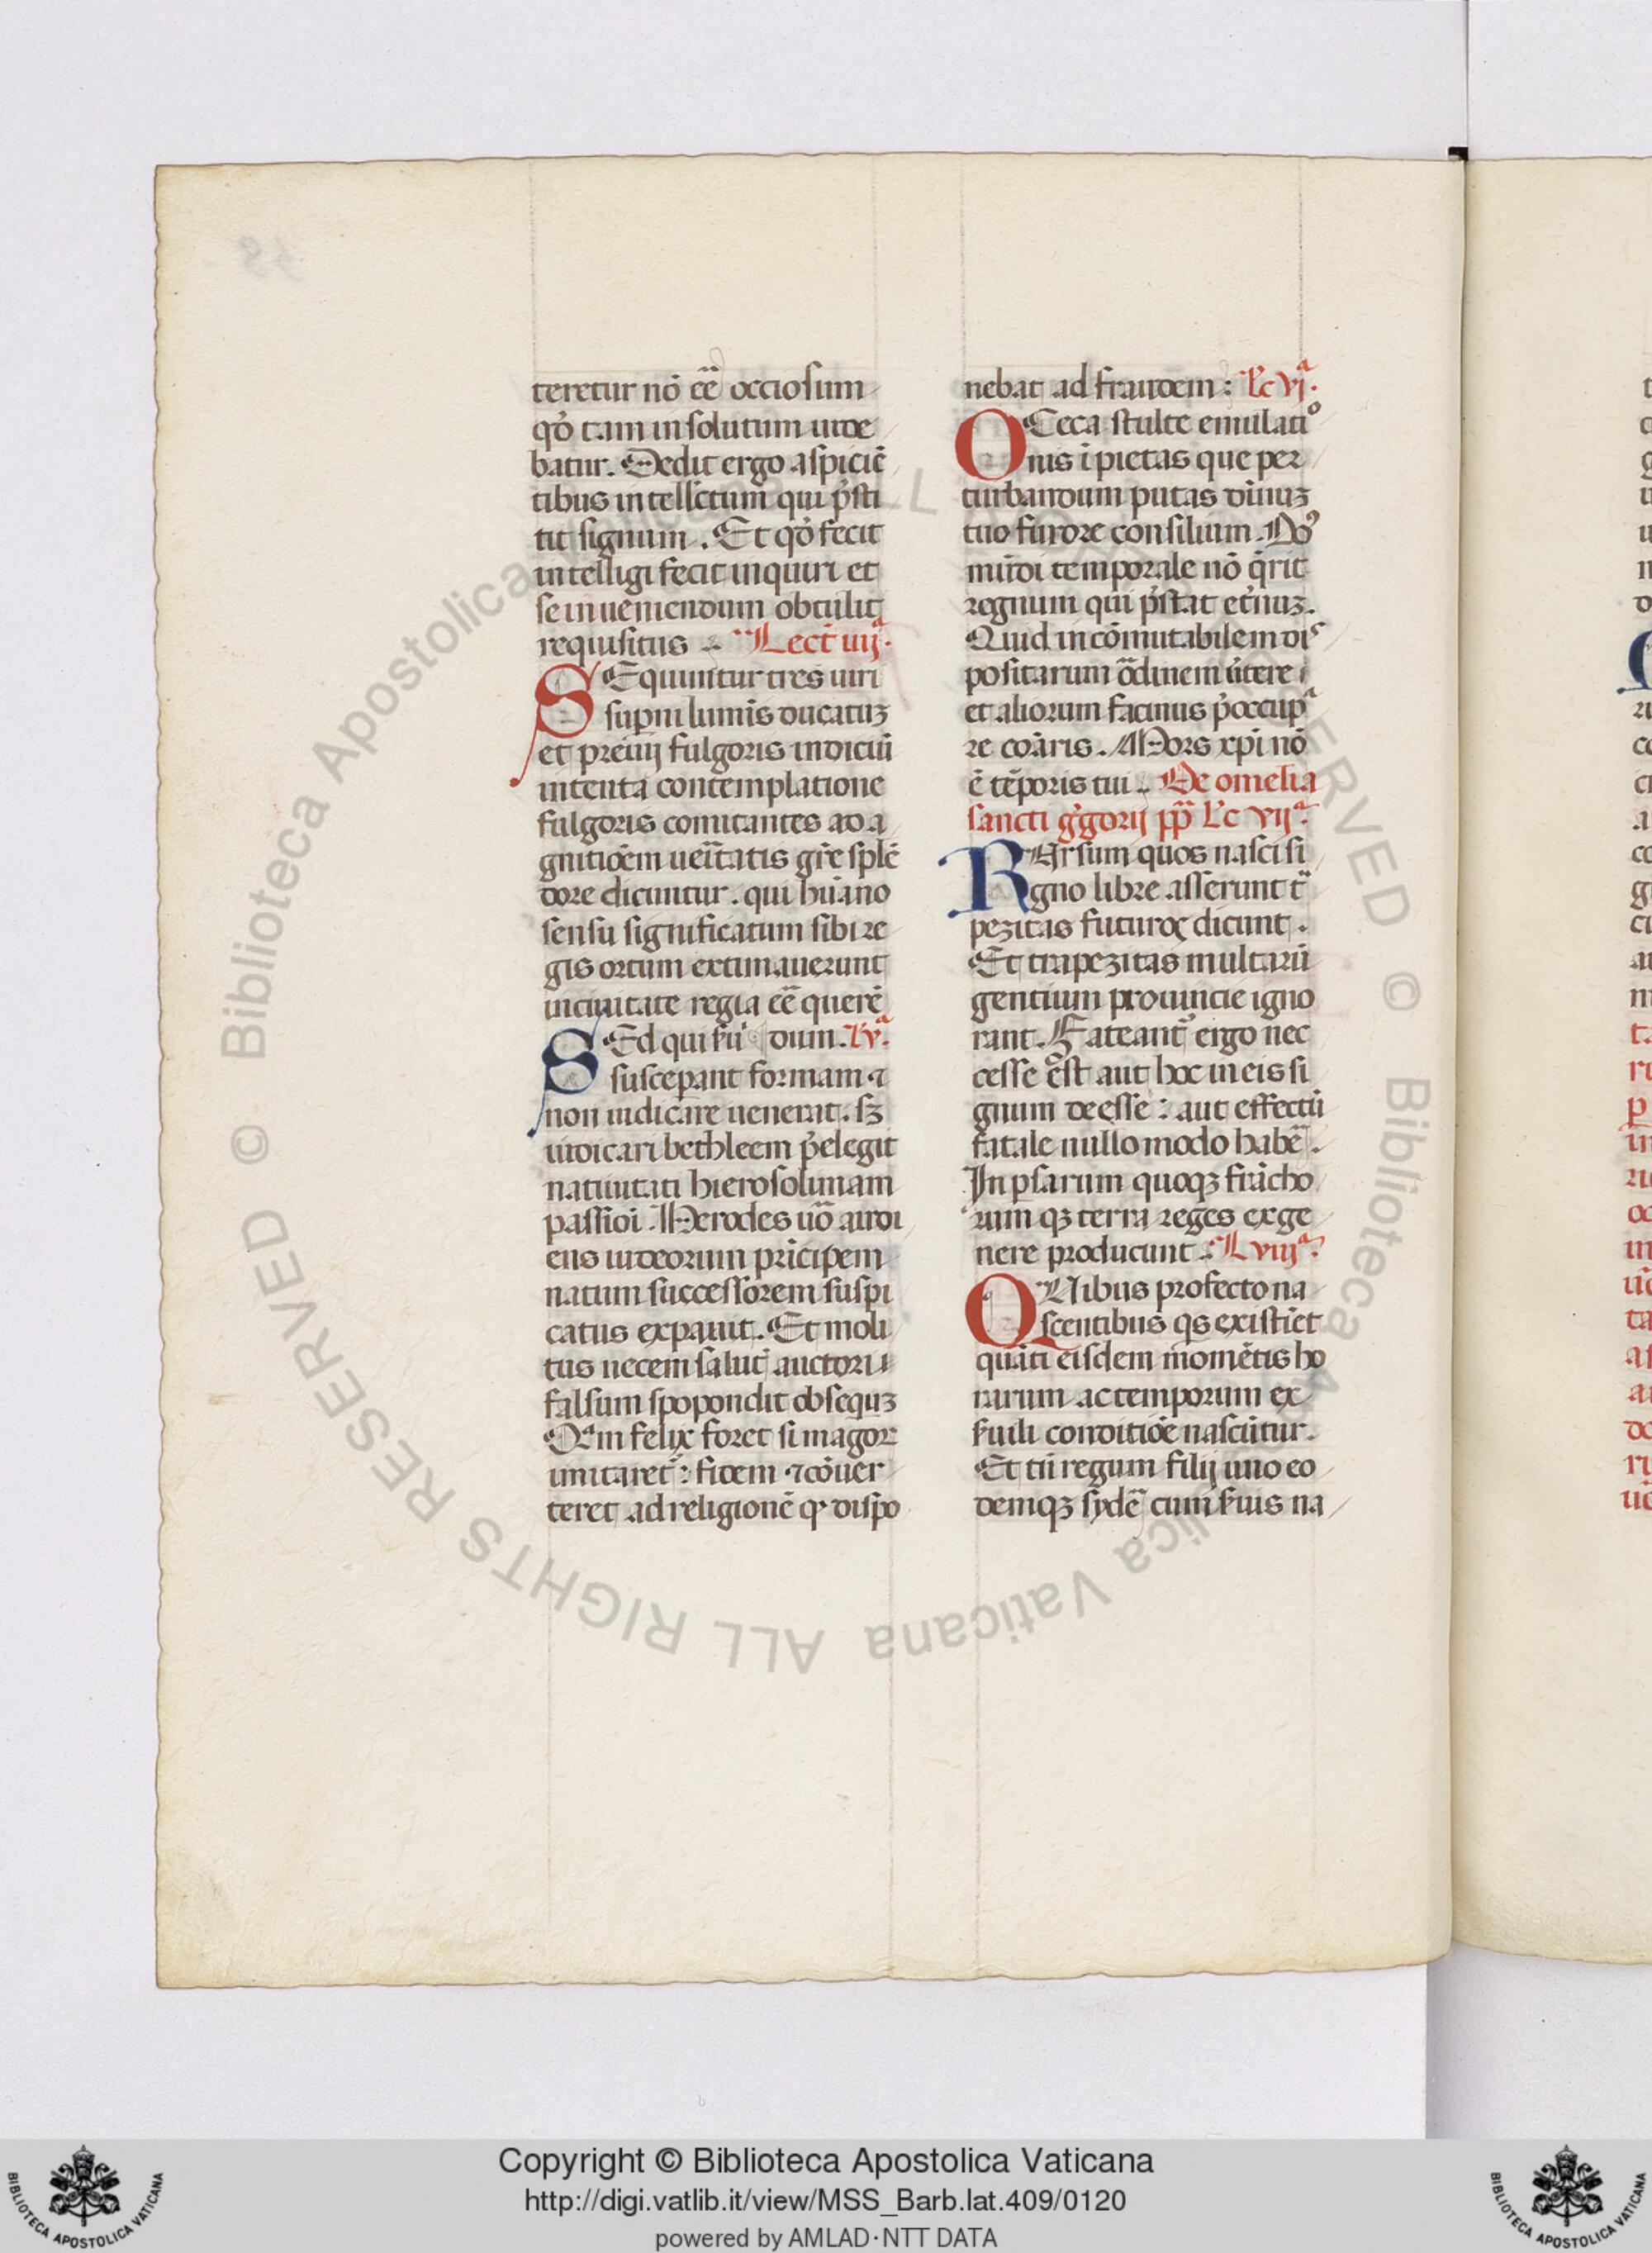 teretur nō eē occiosum
qđ tam insolutum uide
batur. Dedit ergo aspiciē
tibus intellectum qui p̄sti
tit signum. Et qđ fecit
intelligi fecit inquiri et
se inueniendum obtulit
requisitus. Lect̄ iiijª.
SEquuntur tres uiri
suꝑni luminis ducatuꝫ
et preuij fulgoris indiciū
intenta contemplatione
fulgoris comitantes ad a
gnitiōem ueītatis gr̄e splē
dore dicuntur. qui hūano
sensu significatum sibi re
gis ortum extimauerunt
in ciuitate regia eē querē
SEd qui s̄ui dum. L̄ vª.
susceꝑant formam ⁊
non iudicare uenerat. sꝫ
iudicari bethleem p̄elegit
natiuitati hierosolimam
passioī. Herodes uō audi
ens iudeorum prīcipem
natum successorem suspi
catus expauit. Et moli
tus necem salut̄ auctori
falsum spopondit obsequꝫ
Qm̄ felix foret si magoꝝ
imitaret̄: fidem ⁊ cōuer
teret ad religionē q̄ dispo
nebat ad fraudem: L̄c vjª.
OCeca stulte emulati⁰
nis īpietas que per
turbandum putas diuinuꝫ
tuo furore consilium. Dn̄s
mūdi temporale nō q̄rit
regnum qui p̄stat et̄nuꝫ.
Quid incōmutabilem dis
positarum ōdinem ūtere
et aliorum facinus p̄occupª
re conaris. Mors xp̄i nō
ē tēporis tui. De omelia
sancti g̾gorij pp̄ L̄c vijª.
RUrsum quos nasci si
gno libre asserunt tª
pezitas futuroꝝ dicunt.
Et trapezitas multarū
gentium prouincie igno
rant. Fateant̄ ergo nec
cesse est aut hoc in eis si
gnum deesse: aut effectū
fatale nullo modo habē.
In ꝑsarum quoqꝫ frācho
rum qꝫ terra reges ex ge
nere producunt. L̄ viijª.
QUibus profecto na
scentibus qs existīet
quāti eisdem momētis ho
rarum ac temporum ex
s̄uili conditiōe nascūtur.
Et tn̄ regum filij uno eo
demqꝫ sydē cum s̄uis na
Copyright © Biblioteca Apostolica Vaticana
http://digi.vatlib.it/view/MSS_Barb.lat.409/0120
powered by AMLAD·NTT DATA